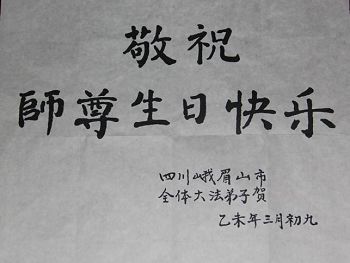 敬祝
師尊生日快乐
四川峨眉山市
全体大法弟子贺
乙未年三月初九